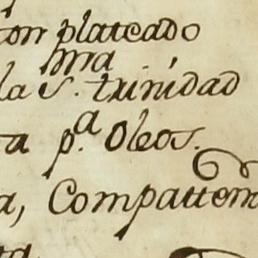 ton plateado
la S.ma trinidad
ta p.a Oleos.
a, Compattem
ta